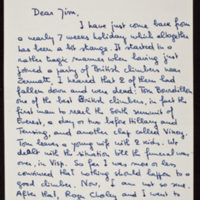 Dear Jim,
I have just come back from
a nearly 7 weeks holiday which altogether
has been a bit strange. It started in a
rather tragic manner when having just
joined a party of British climbers near
Zermatt, I learned that 2 of them had
fallen down and were dead! Tom Bourdillon
one of the best British climbers, in fact the
first man to reach the South summit of
Everest, a day or two before Hillary and
Tensing, and another clay called Viney.
Tom leaves a young wife & 2 kids. We
dealt with the situation till the funeral was
over, in Visp. So far I was more or less
convinced that nothing should happen to a
good climber. Now, I am not so sure.
After that, Roger Choley and I went to